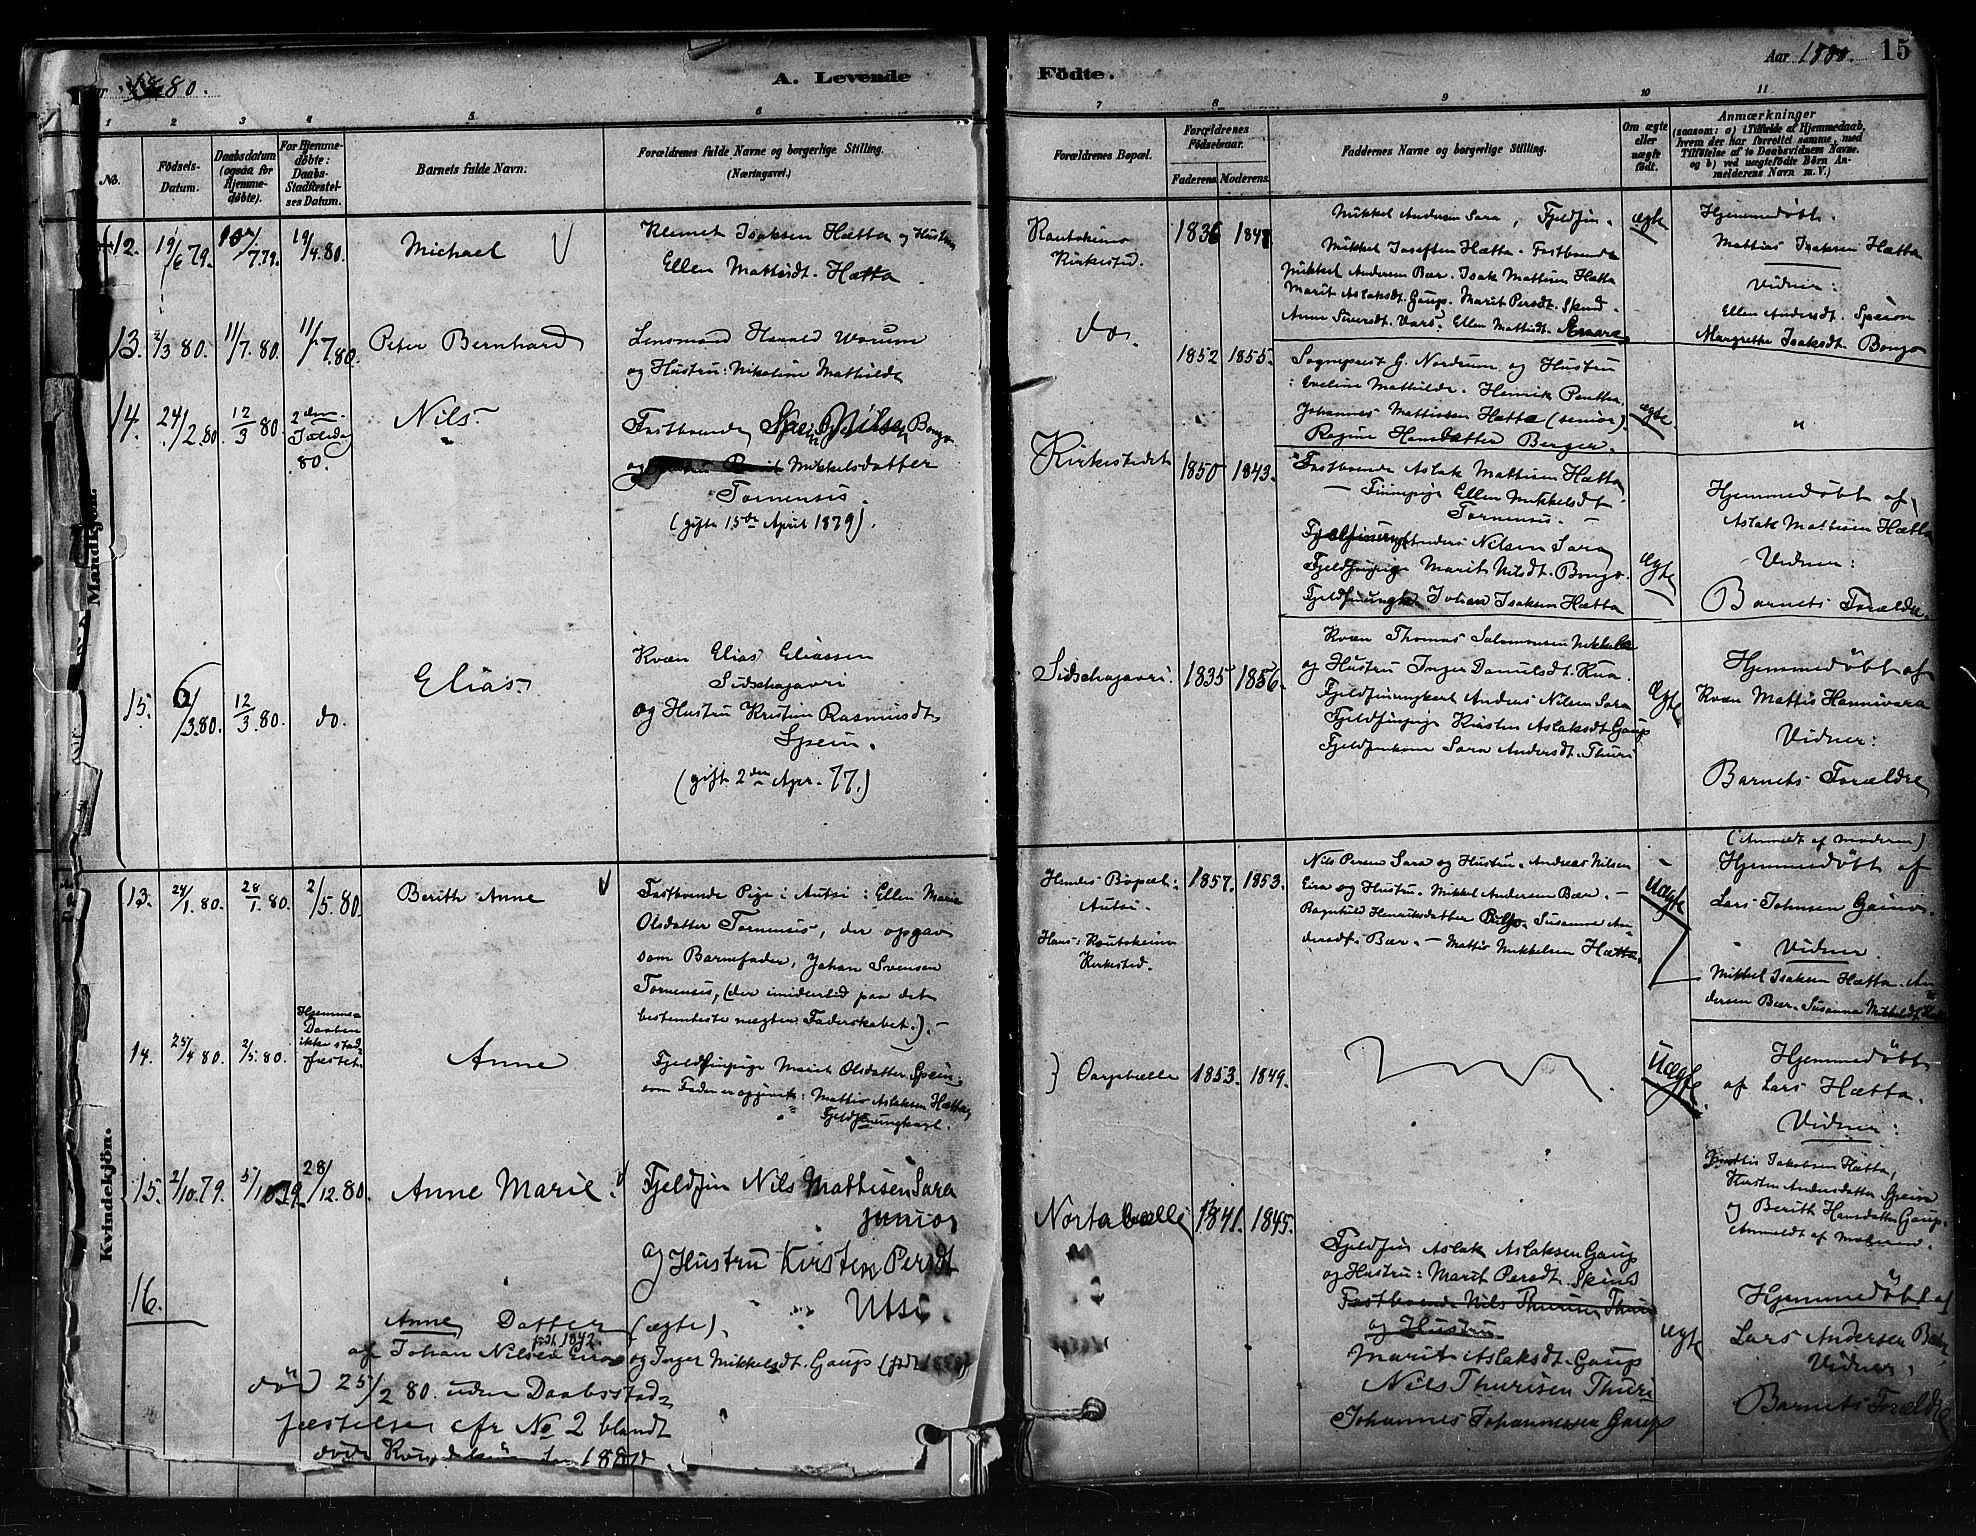 80.
A. Levende
Födte.
Aar 1880.
15
1 2 3 4 5 6
7 8 9 10 11
No.
Födsels-Datum.
Daabsdatum (ogsaa for Hjemmedøbte).
For Hjemmedøbte: Daabs-Stadfæstelses Datum.
Barnets fulde Navn.
Forældrenes fulde Navne og borgerlige Stilling. (Næringsvei.)
Forældrenes Bopæl.
Forældrenes Födselsaar.
Faderens. Moderens.
Faddernes Navne og borgerlige Stilling.
Om ægte eller uægte født.
Anmærkninger
(saasom: a) i Tilfælde af Hjemmedaab,
hvem der har forrettet samme, med
Tilföielse af to Daabsvidners Navne,
og b) ved uægtefödte Börn An-
melderens Navn m. V.)
Mandkjön.
12. 19/6 79. 7.79. 19/4.80
Michael
Klemet Isaksen Hætta og Hustru
Ellen Mattisdt. Hætta
Kautokeino
Kirkested.
1836
Mikkel Andersen Sara, Fjeldfin.
Mikkel Josefsen Hætta. Fastboende
Mikkel Andersen Bær. Isak Mattisen Hætta
Marit Aslaksdt. Gaup. Marit Persdt. Skum
Ellen Mattisdt.
ægte
Hjemmedøbt.
Mattias Isaksen Hætta
Vidner:
Ellen Andersdt. Spein
Margrethe Isaksdt. Bongo
13. 2/3 80. 11/7.80. 11/7.80.
Peter Bernhard
Lensmand Harald Worum
og Hustru: Nikoline Mathilde
do.
1852 1855.
Sogneprest G. Nordrum og Hustru
: Eveline Mathilde. Henrik Penttta.
Johannes Mattissen Hætta (senior).
Regine Hansdatter Berger.
ægte.
"
14. 24/2.80 12/3 80. 2den Juledag 80.
Nils.
Fastboende Nilsen Bongo
og Mikkelsdatter
Tornensis.
(gifte 15de April 1879).
Kirkestedet
1850 1843.
Fastboende Aslak Mattisen Hætta
— Finnepige Ellen Mikkelsdt.
Tornensis. —
Anders Nilsen Sara
Fjeldfinpige Marit Nilsdt. Bongo.
Johan Isaksen Hætta
ægte
Hjemmedøbt af
Aslak Mattisen Hætta
Vidner:
Barnets Forældre.
15. 6/3.80. 12/3.80. do.
Elias.
Kvæn Elias Eliassen
Sidschajavri
og Hustru Kristine Rasmusdt.
Spein.
(gift 2den Apr. 77.)
Sidschajavri.
1835 1856.
Kvæn Thomas Salomonsen
og Hustru Inger Danielsdt. Kua.
Fjeldfinungkarl Anders Nilsen Sara
Fjeldfinpige Kirsten Aslaksdt. Gaup
Fjeldfinkone Sara Andersdt. Thuri
ægte
Hjemmedøbt af
Kvæn Mattis Hannivara
Vidner:
Barnets Forældre
Kvindekjön.
13. 24/1.80. 28/1.80. 2/5.80.
Berith Anne
Fastboende Pige i Autsi: Ellen Marie
Olsdatter Tornensis, der opgav
som Barnefader, Johan Svensen
Tornensis, (der imidlertid paa det
bestemteste negter Faderskabet.). —
Hendes Bopæl:
Autsi.
Hans: Kautokeino
Kirkested.
1857. 1853.
Nils Persen Sara og Hustru. Andreas Nilsen
Eira og Hustru. Mikkel Andersen Bær. —
Ragnhild Henriksdatter Susanne An-
dersdt. Bær. — Mattis Mikkelsen Hætta.
Uægte
(Anmeldt af Moderen)
Hjemmedøbt af
Lars Johnsen Gainos.
Vidner.
Mikkel Isaksen Hætta. An-
dersen Bær. Susanna Mikkelsdt.
14. 25/4 80. 2/5.80.
Hjemme-
Daaben
ikke stad-
fæstet.
Anne
Fjeldfinpige Marit Olsdatter Spein.
som Fader er opgivet: Mattis Aslaksen Hætta,
Fjeldfinungkarl.
} Oarjebælle
1853. 1849.
Uægte.
Hjemmedøbt
af Lars Hætta.
Vidner:
Jakobsen Hætta,
Kirsten Andersdatter Spein
og Berith Hansdatter Gaup.
Anmeldt af Moderen.
15. 2/10.79. 5/10.79. 28/12.80.
Anne Marie.
Fjeldfin Nils Mattisen Sara
junior
og Hustru Kirsten Persdt
Utsi.
Nortabælle
1841. 1845.
Fjeldfin Aslak Aslaksen Gaup
og Hustru: Marit Persdt. Spein
Fastboende Nils Thurisen Thuri
og Hustru
Marit Aslaksdt. Gaup
Nils Thurisen Thuri
Johannes Johannessen Gaup
ægte
Hjemmedøbt af
Lars Andersen Bær,
Vidner.
Barnets Forældre
16.
Anne, Datter (ægte).
født 1842.
af Johan Nilsen Eira og Inger Mikkelsdt. Gaup
død 25/2 80. uden Daabsstad-
fæstelse cfr No 2 blandt
døde Kvindekjøn